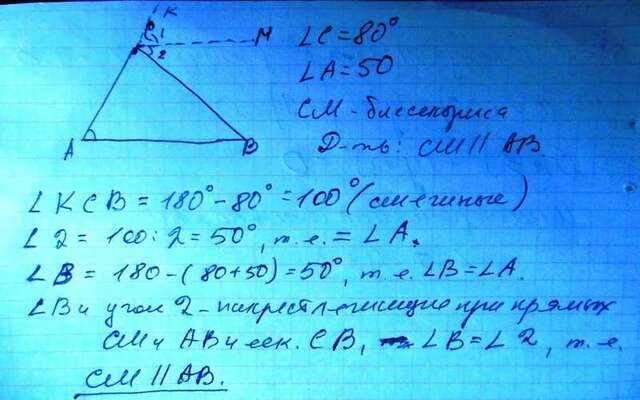 К
1
2
М
А
В
∠C = 80°
∠A = 50
CM - биссектриса
Д-ть: CM || AB.
∠KCB = 180° - 80° = 100° (смежные)
∠2 = 100 : 2 = 50°, т.е. = ∠A.
∠B = 180 - (80 + 50) = 50°, т.е. ∠B = ∠A.
∠B и угол 2 - накрест лежащие при прямых
CM и AB и сек. CB, ∠B = ∠2, т.е.
CM || AB.